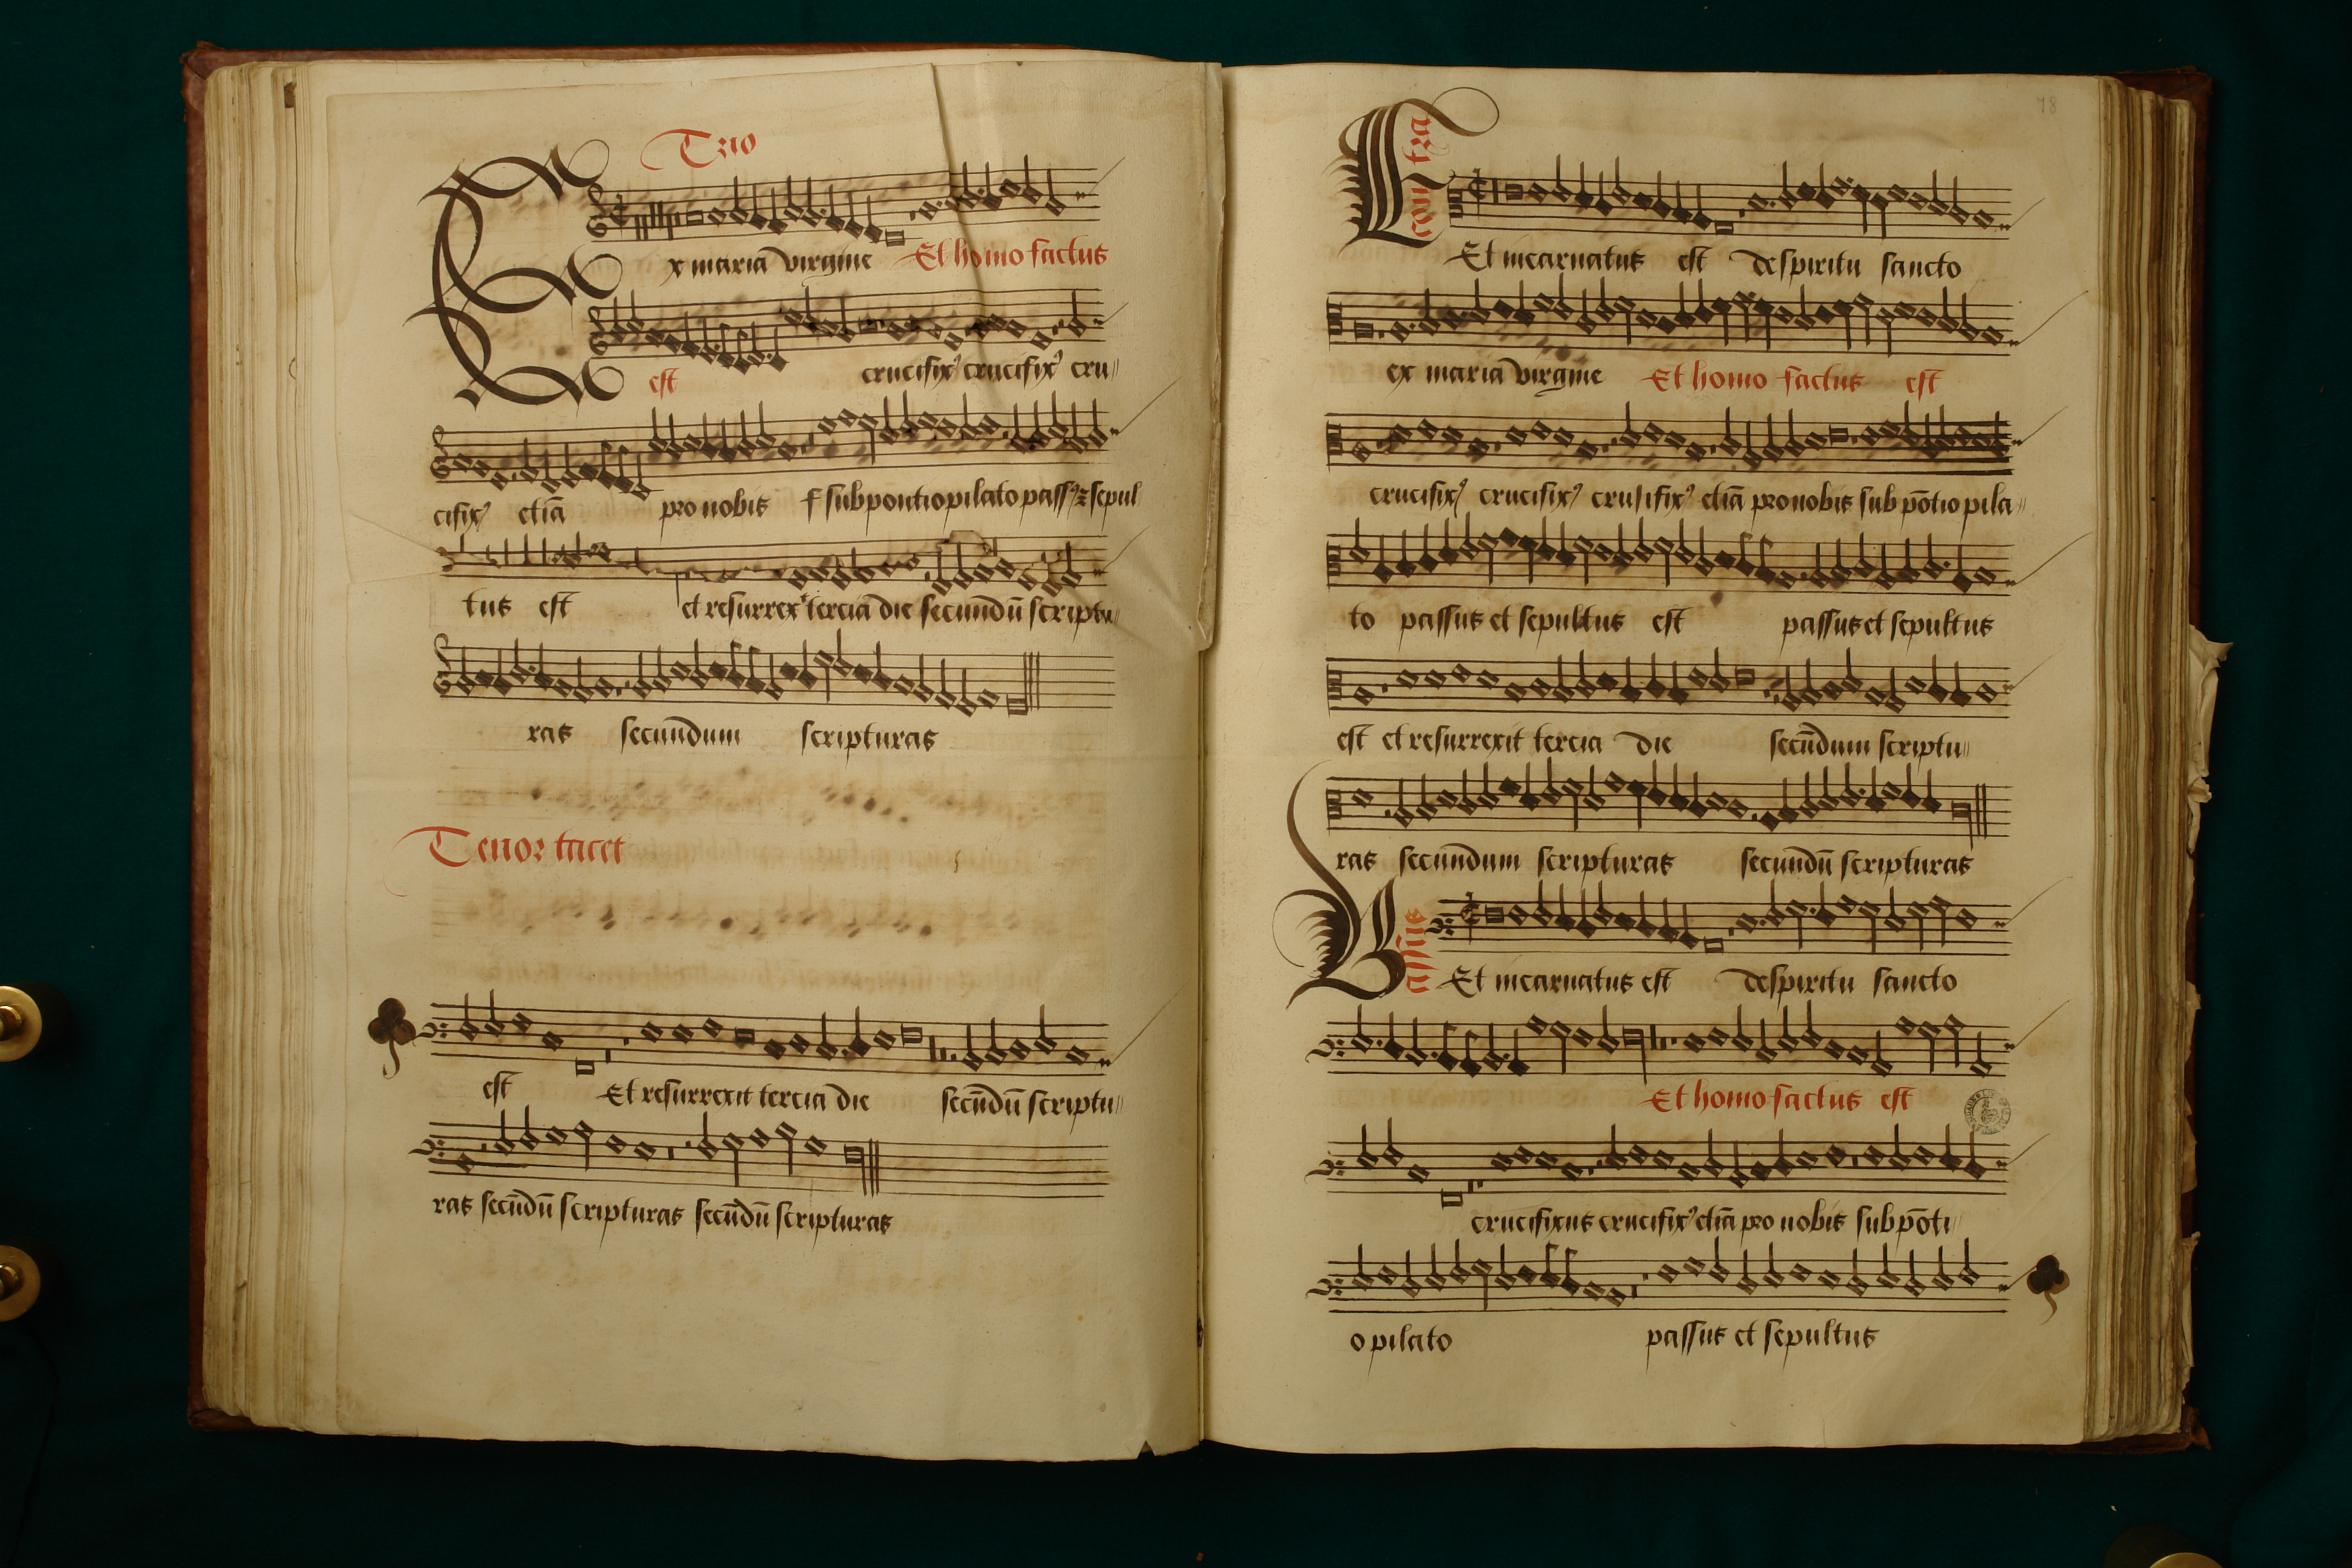 Trio
Ex mariā virgine Et homo factus
est crucifixꝰ crucifixꝰ cru
cifixꝰ etiā pro nobis sub pontio pilato passꝰ ⁊ sepul
tus est et resurrexᵗ tercia die secundū scriptu
ras secundum scripturas
Tenor tacet
est Et resurrexit tercia die secūdū scriptu
ras secūdū scripturas secūdū scripturas
78
Contra
Et incarnatus est de spiritu sancto
ex maria virgine Et homo factus est
crucifixꝰ crucifixꝰ crusifixꝰ etiā pro nobis sub pōtio pila
to passus et sepultus est passus et sepultus
est et resurrexit tercia die secūdum scriptu
ras secundum scripturas secundū scripturas
Bassus
Et incarnatus est de spiritu sancto
Et homo factus est
crucifixus crucifixꝰ etiā pro nobis sub pōti
o pilato passus et sepultus